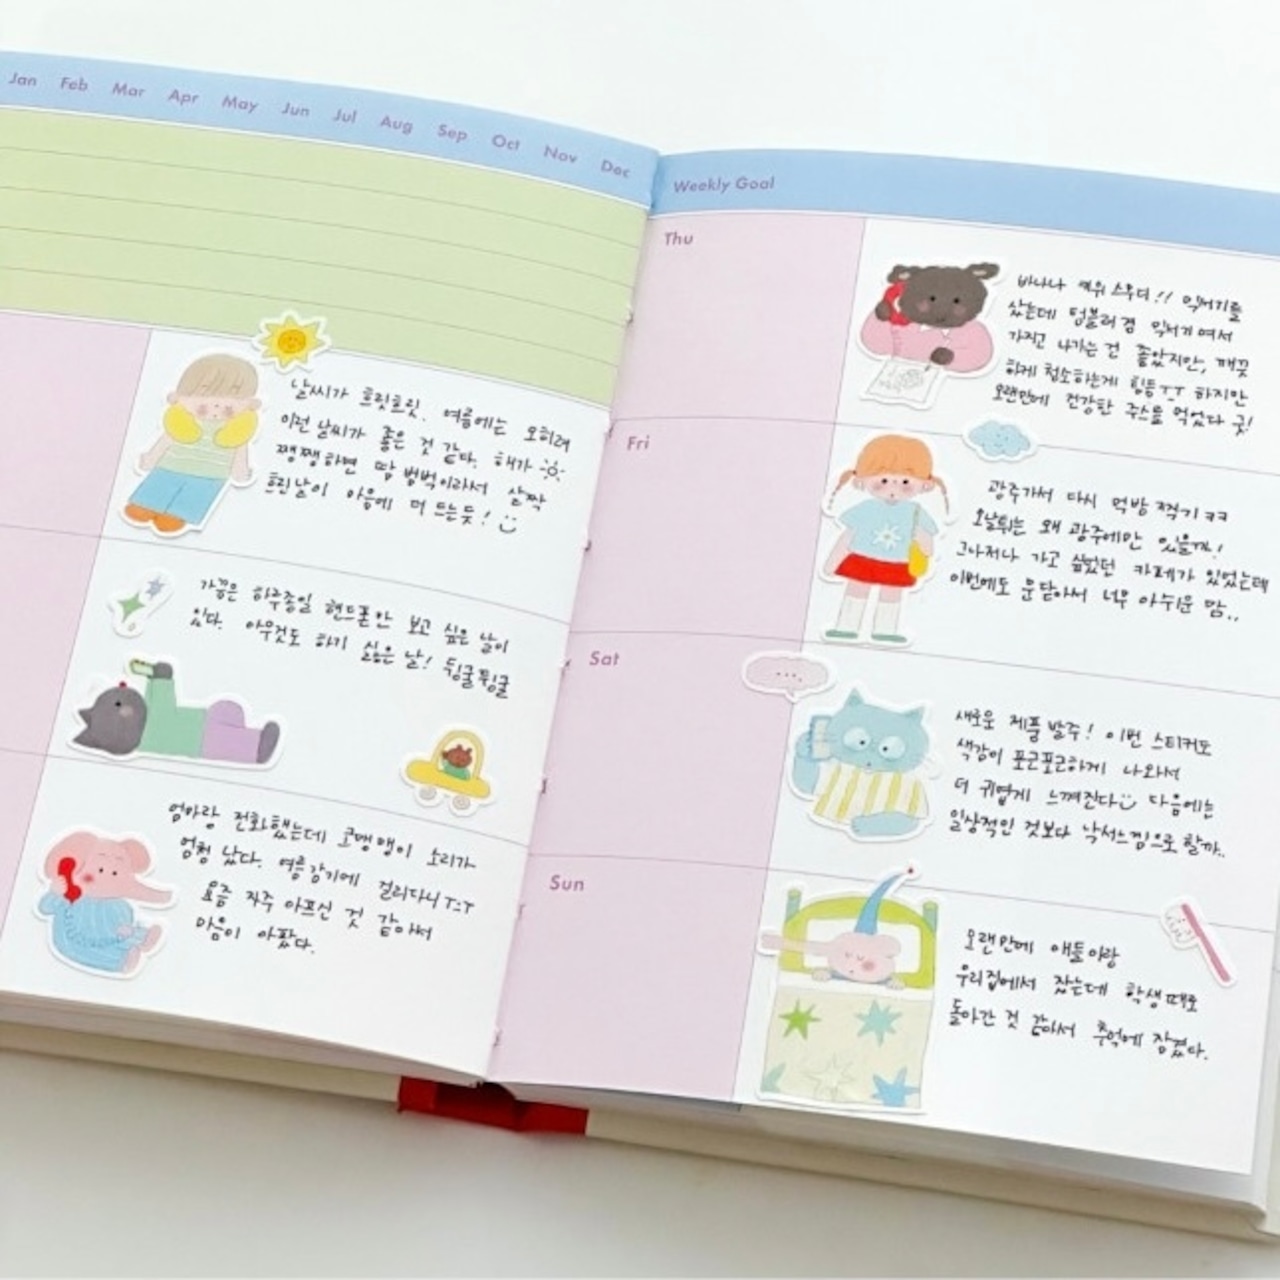 Jan Feb Mar Apr May Jun Jul Aug Sep Oct Nov Dec
날씨가 흐릿흐릿. 여름에는 오히려
이런 날씨가 좋은 것 같다. 해가
쨍쨍하면 땀 범벅이라서 살짝
흐린날이 마음에 더 드는듯!
가끔은 하루종일 핸드폰만 보고 싶은 날이
있다. 아무것도 하기 싫은 날! 뒹굴뒹굴
엄마랑 전화했는데 코맹맹이 소리가
엄청 났다. 여름감기에 걸리다니 T-T
요즘 자주 아프신 것 같아서
마음이 아팠다.
Weekly Goal
Thu
바나나 스무디!! 믹서기를
샀는데 텀블러겸 믹서기여서
가지고 나가는 건 좋았지만, 깨끗
하게 청소하는게 힘듦ㅜㅜ 하지만
오랜만에 건강한 주스를 먹었다 굿!
Fri
광주가서 다시 먹방 찍기 ㅋㅋ
오날튀는 왜 광주에만 있을까!
그나저나 가고 싶었던 카페가 있었는데
이번에도 문닫아서 너무 아쉬운 맘..
Sat
새로운 제품 발주! 이번 스티커도
색감이 포근포근하게 나와서
더 귀엽게 느껴진다 다음에는
일상적인 것보다 낙서느낌으로 할까..
Sun
오랜만에 애들이랑
우리집에서 잤는데 학생때로
돌아간 것 같아서 추억에 잠겼다.